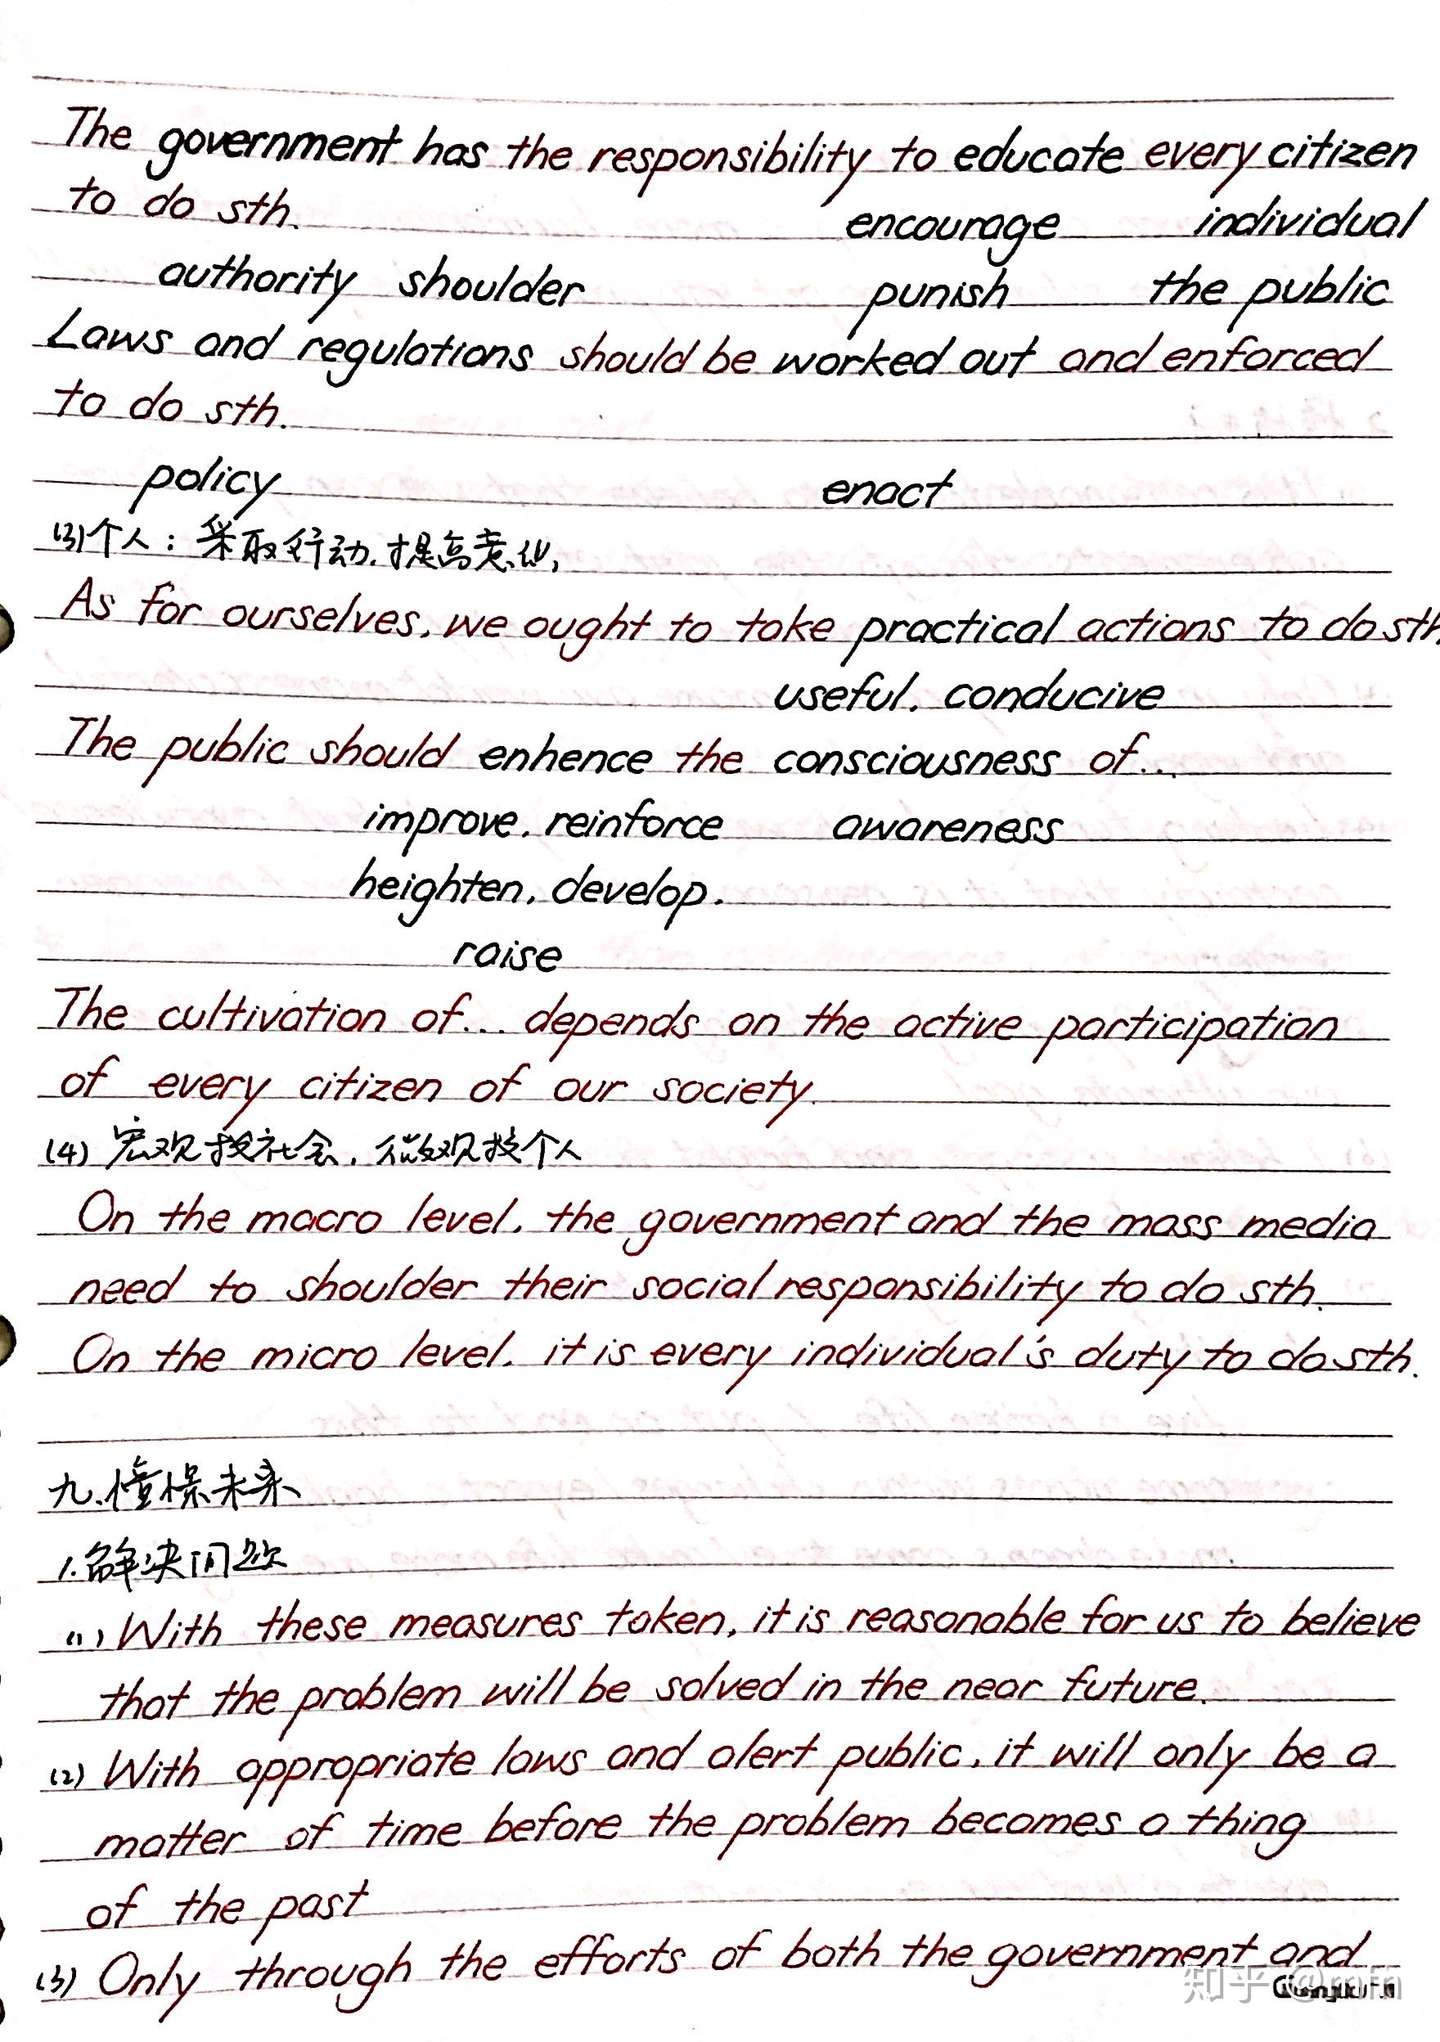 The government has the responsibility to educate every citizen
to do sth.
encourage individual
authority shoulder punish the public
Laws and regulations should be worked out and enforced
to do sth.
policy enact
(3)个人：采取行动，提高意识，
As for ourselves, we ought to take practical actions to do sth.
useful, conducive
The public should enhence the consciousness of...
improve, reinforce awareness
heighten, develop,
raise
The cultivation of... depends on the active participation
of every citizen of our society.
(4) 宏观找社会，微观找个人
On the macro level, the government and the mass media
need to shoulder their social responsibility to do sth.
On the micro level, it is every individual's duty to do sth.
九、憧憬未来
1.解决问题
(1) With these measures taken, it is reasonable for us to believe
that the problem will be solved in the near future.
(2) With appropriate laws and alert public, it will only be a
matter of time before the problem becomes a thing
of the past
(3) Only through the efforts of both the government and
知乎 @mfn